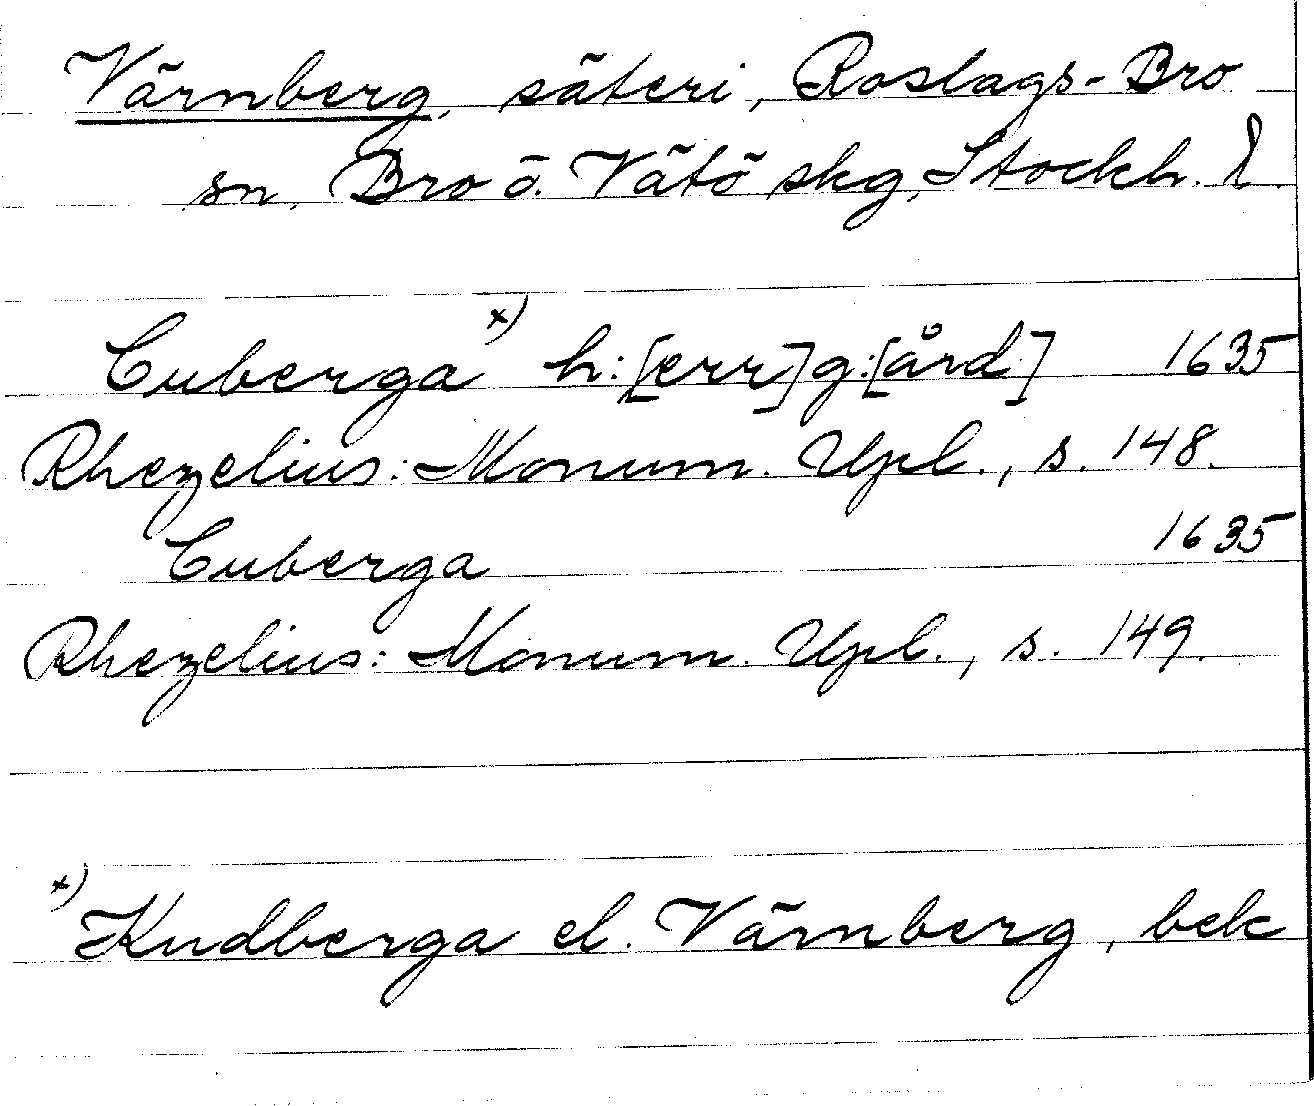 Värnberg, säteri, Roslags-Bro
sn, Bro o. Vätö skg, Stockh. l.
Cuberga x) h:[err]g:[ård] 1635
Rhezelius: Monum. Upl., s. 148.
Cuberga 1635
Rhezelius: Monum. Upl., s. 149.
x) Kudberga el. Värnberg, bek